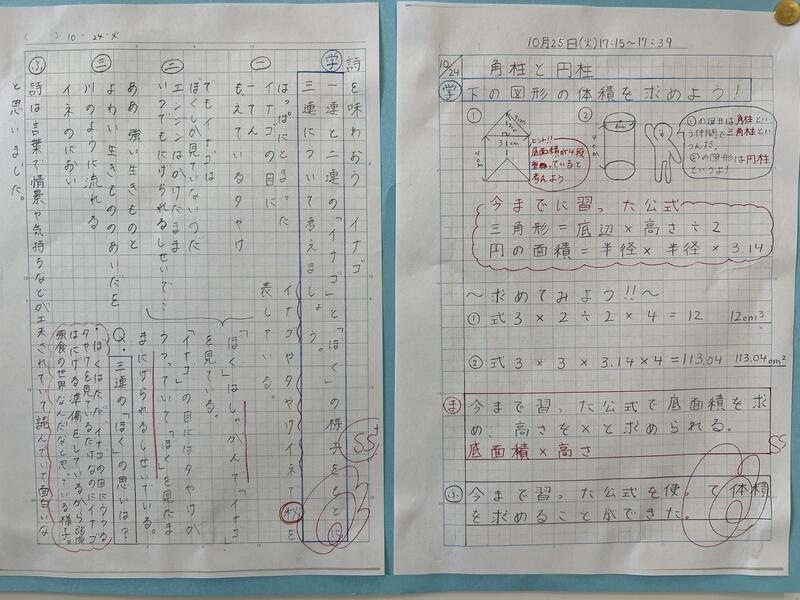 (　) 10・24・火
詩を味わおう　イナゴ
学 一連と二連の「イナゴ」と「ぼく」の様子をもとに
三連について考えましょう。
一
はっぱにとまった
イナゴの目に
一てん
もえている夕やけ
イナゴや夕やけイネで
秋を
表している。
二
でもイナゴは
ぼくしか見ていないのだ
エンジンをかけたまま
いつでもにげられるしせいで…
「ぼく」はしゃがんで「イナゴ」
を見ている。
「イナゴ」の目には夕やけが
うつっていて「ぼく」を見たま
まにげられるしせいでいる。
三
ああ　強い生きものと
よわい生きもののあいだを
川のように流れる
イネのにおい
Q.三連の「ぼく」の思いは?
・ぼくはただイナゴの目にうつる
夕やけを見ているだけなのにイナゴ
はにげる準備をしているから弱肉
強食の世界なんだなと思っている様子。
ふ 詩は言葉で情景や気持ちなどが工夫されていて読んでいて面白いな
と思いました。
SS+
10月25日(火)17:15~17:39
10/24 角柱と円柱
学 下の図形の体積を求めよう!
①
②
3cm
4cm
ヒント!!
底面積が4段
重なっていると
考えよう
①の図形は角柱とい
う仲間で三角柱とい
うんだ。
②の図形は円柱
というよ!
今までに習った公式
三角形=底辺×高さ÷2
円の面積=半径×半径×3.14
~求めてみよう!!~
①式 3×2÷2×4=12 12cm³
②式 3×3×3.14×4=113.04 113.04cm²
ま 今まで習った公式で底面積を求
め、高さを×と求められる。
底面積×高さ
SS
ふ 今まで習った公式を使って体積
を求めることができた。